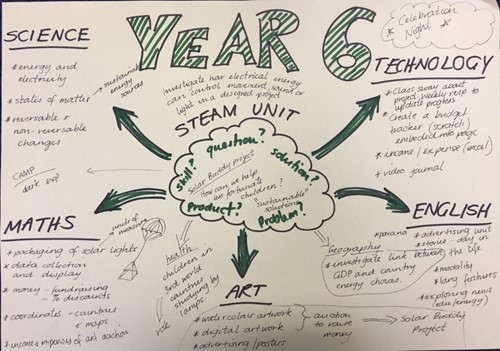 YEAR 6
STEAM UNIT
Investigate how electrical energy
can control movement, sound or
light in a designed project
Celebration
Night
SCIENCE
* energy and
electricity
sustainable
energy
sources
* states of matter
* reversable +
non-reversable
changes
CAMP
dark exp
TECHNOLOGY
* Class sway about
project, weekly resp to
update progress
* Create a budget
tracker (scratch)
embeded into page
* income / expense (excel)
* video journal
skill?
question?
solution?
product?
problem?
Solar Buddy project
How can we help
less fortunate
children?
"sustainable"
solutions
MATHS
units of
measure
* packaging of solar lights
* data collection
and display
* money - fundraising
- % discounts
* coordinates - countries
+ maps
* income/expenses of art auction
health
children in
3rd world
countries
studying by
lamps
risk
ART
* watercolour artwork
* digital artwork
* advertising / posters
auction
to raise
money
Solar Buddy
Project
Geography
* investigate link between
GDP and country
energy choices.
ENGLISH
* advertising unit
day in
the life
* modality
* lang features
* exploring news